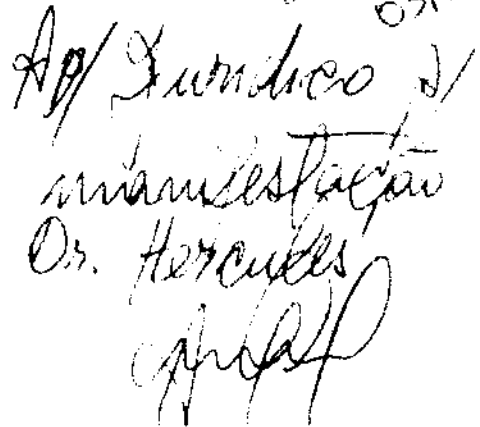 Ap/ Jurídico p/
manifestação
Dr. Hercules